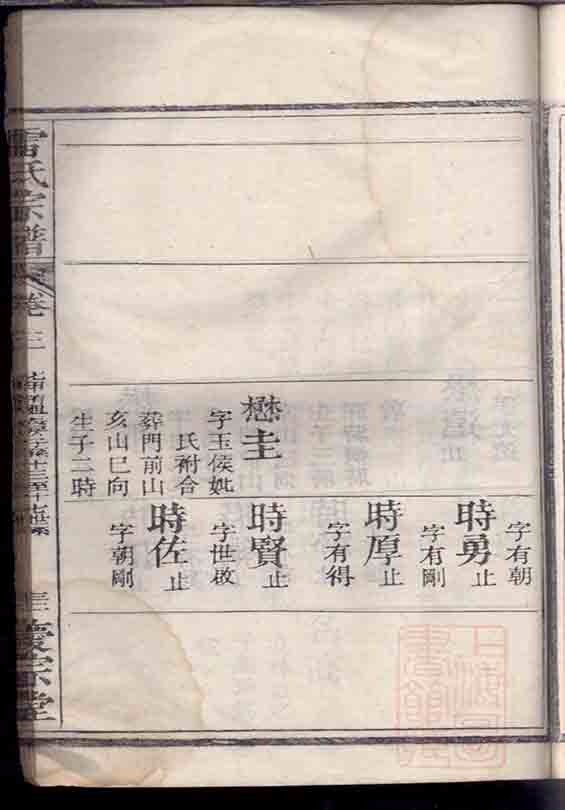 字有朝
時勇止
字有剛
時厚止
字有得
懋圭
字玉侯妣
氏祔合
葬門前山
亥山巳向
生子二時
時賢止
字世啟
時佐止
字朝剛
雷氏宗譜
卷三
愛宗堂
上海圖書館藏